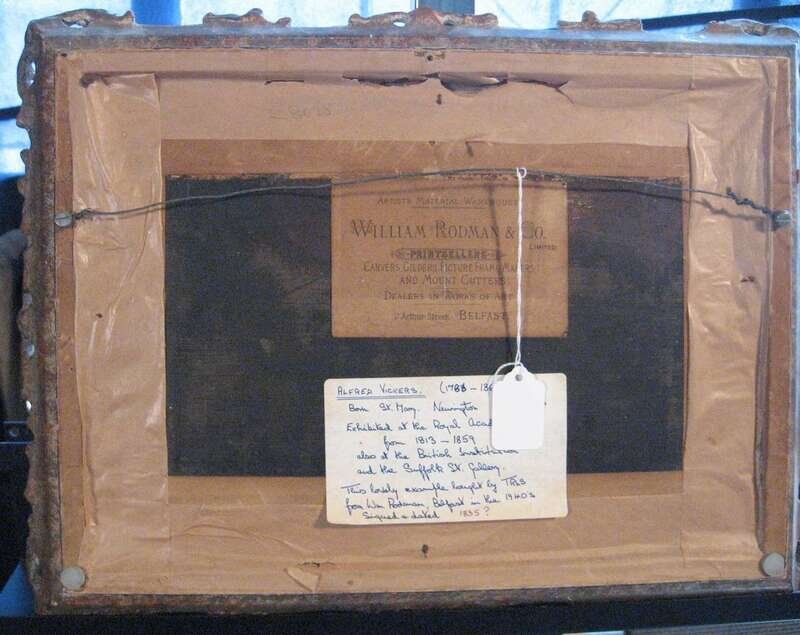 ARTISTS MATERIAL WAREHOUSE
WILLIAM RODMAN & CO.
LIMITED
PRINTSELLERS
CARVERS, GILDERS, PICTURE FRAME MAKERS
AND MOUNT CUTTERS
DEALERS IN WORKS OF ART
Arthur Street, BELFAST
ALFRED VICKERS. (1788 - 
Born St. Mary. Newington
Exhibited at the Royal Acad
from 1813 - 1859
also at the British Institution
and the Suffolk St. Gallery.
This lovely example bought by
from Wm Rodman, Belfast in the 1940s
Signed & dated 1835?